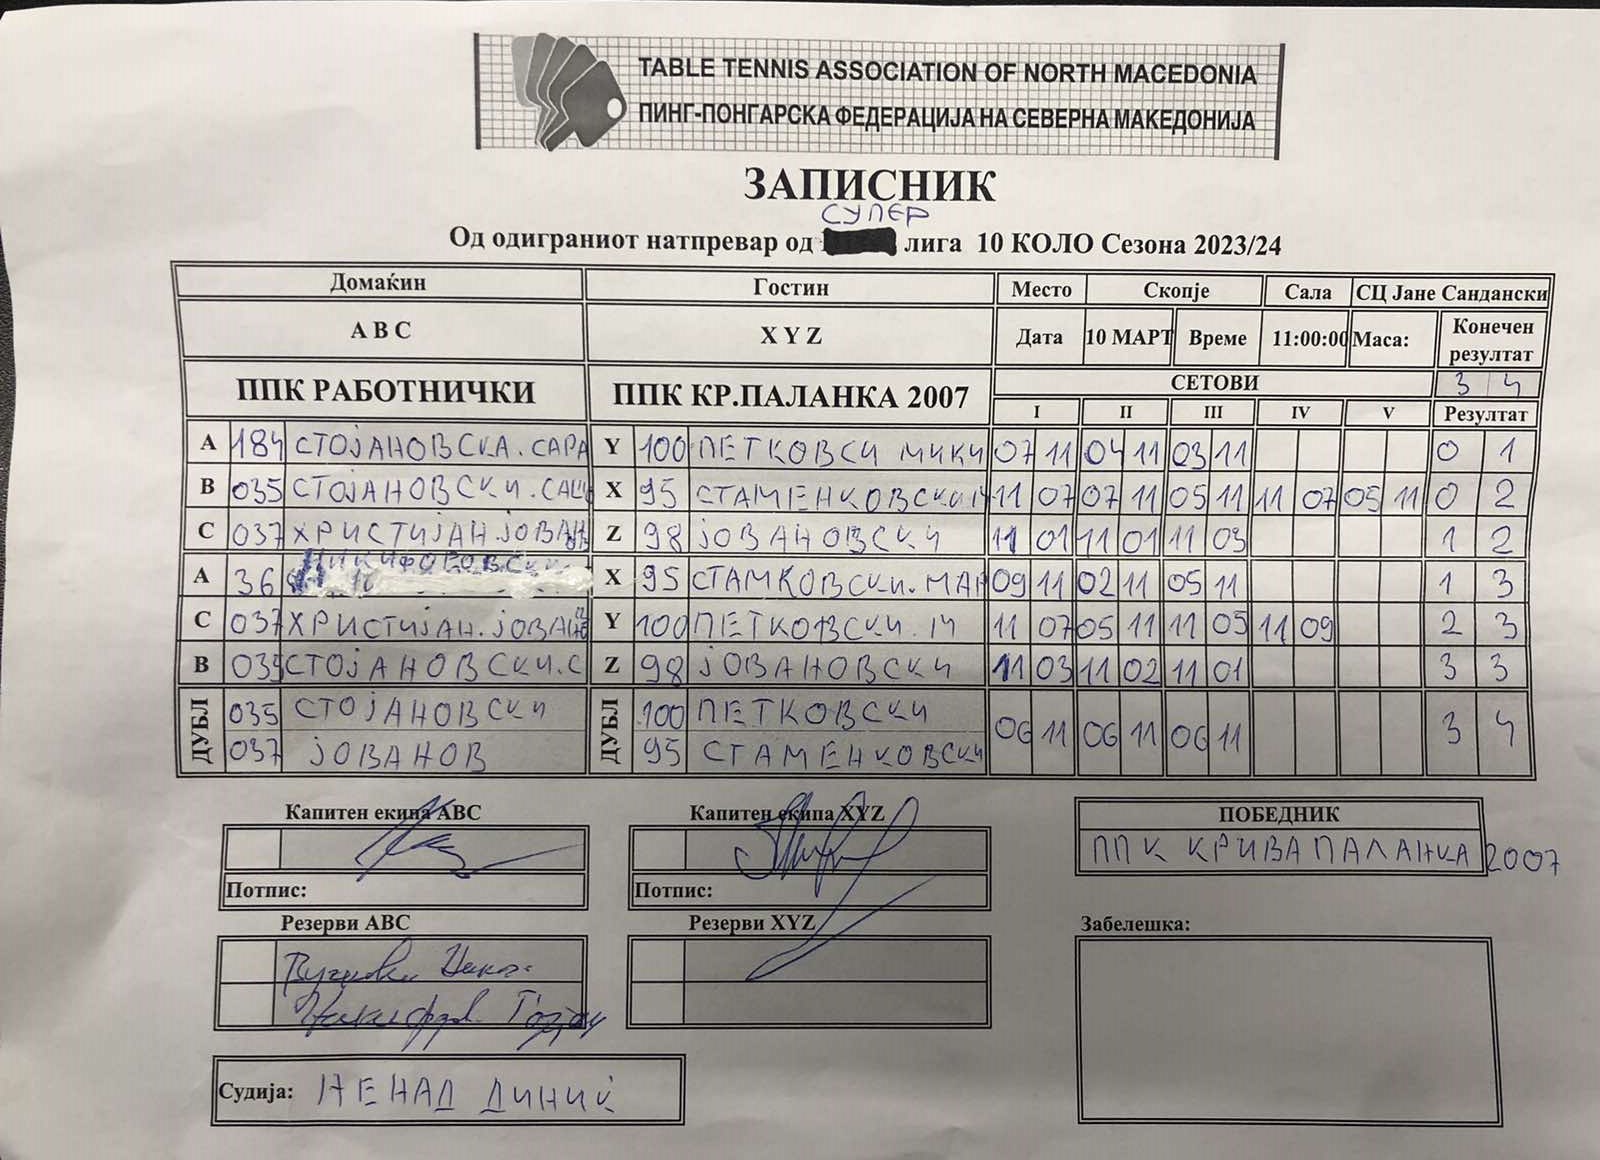 TABLE TENNIS ASSOCIATION OF NORTH MACEDONIA
ПИНГ-ПОНГАРСКА ФЕДЕРАЦИЈА НА СЕВЕРНА МАКЕДОНИЈА
ЗАПИСНИК
СУПЕР
Од одиграниот натпревар од лига 10 КОЛО Сезона 2023/24
Домаќин Гостин Место Скопје Сала СЦ Јане Сандански
A B C X Y Z Дата 10 МАРТ Време 11:00:00 Маса: Конечен резултат
ППК РАБОТНИЧКИ ППК КР.ПАЛАНКА 2007 СЕТОВИ 3 4
I II III IV V Резултат
A 184 СТОЈАНОВСКА.САРА Y 100 ПЕТКОВСКИ МИКИ 07 11 04 11 03 11 0 1
B 035 СТОЈАНОВСКИ. X 95 СТАМЕНКОВСКИ 11 07 07 11 05 11 11 07 05 11 0 2
C 037 ХРИСТИЈАН. Z 98 ЈОВАНОВСКИ 11 01 11 01 11 03 1 2
A 36 НИКИФОРОВСКИ X 95 СТАМКОВСКИ.МАР 09 11 02 11 05 11 1 3
C 037 ХРИСТИЈАН. Y 100 ПЕТКОВСКИ.М 11 07 05 11 11 05 11 09 2 3
B 035 СТОЈАНОВСКИ.С Z 98 ЈОВАНОВСКИ 11 03 11 02 11 01 3 3
ДУБЛ 035 СТОЈАНОВСКИ ДУБЛ 100 ПЕТКОВСКИ 06 11 06 11 06 11 3 4
037 ЈОВАНОВ 95 СТАМЕНКОВСКИ
Капитен екипа ABC Капитен екипа XYZ ПОБЕДНИК
ППК КРИВА ПАЛАНКА 2007
Потпис: Потпис:
Резерви ABC Резерви XYZ Забелешка:
Судија: НЕНАД ДИНИЌ